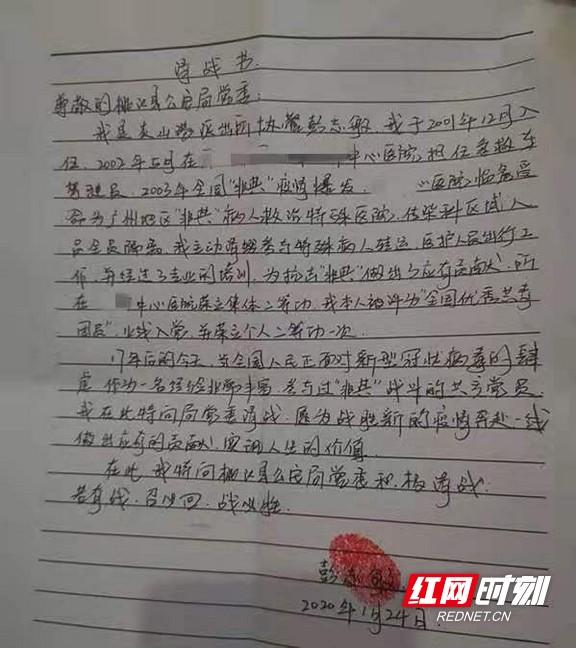 请战书
尊敬的桃江县公安局党委:
我是 派出所协警彭志敏,我于2001年12月入
伍,2002年5月在 中心医院,担任急救车
驾驶员,2003年全国“非典”疫情爆发, 医院临危受
命为广州地区“非典”病人救治特殊医院,传染科区域人
员全员隔离,我主动请缨参与特殊病人转运,医护人员出行工
作,并经过了专业的培训,为抗击“非典”做出了应有贡献,所
在 中心医院荣立集体二等功,我本人被评为“全国优秀共青
团员”,火线入党,并荣立个人二等功一次。
17年后的今天,当全国人民正面对新型冠状病毒的肆
虐,作为一名经验丰富,参与过“非典”战斗的共产党员,
我在此特向局党委请战,愿为战胜新的疫情奔赴一线
做出应有的贡献,实现人生的价值。
在此,我特向桃江县公安局党委积极请战:
若有战,召必回,战必胜
彭志敏
2020年1月24日.
红网时刻
REDNET.CN